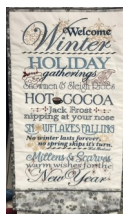 Welcome
Winter
HOLIDAY
gatherings
Snowmen & Sleigh Rides
HOT COCOA
Jack Frost
nipping at your nose
SNOWFLAKES FALLING
No winter lasts forever,
no spring skips its turn.
Mittens & Scarves
warm wishes for the
New Year